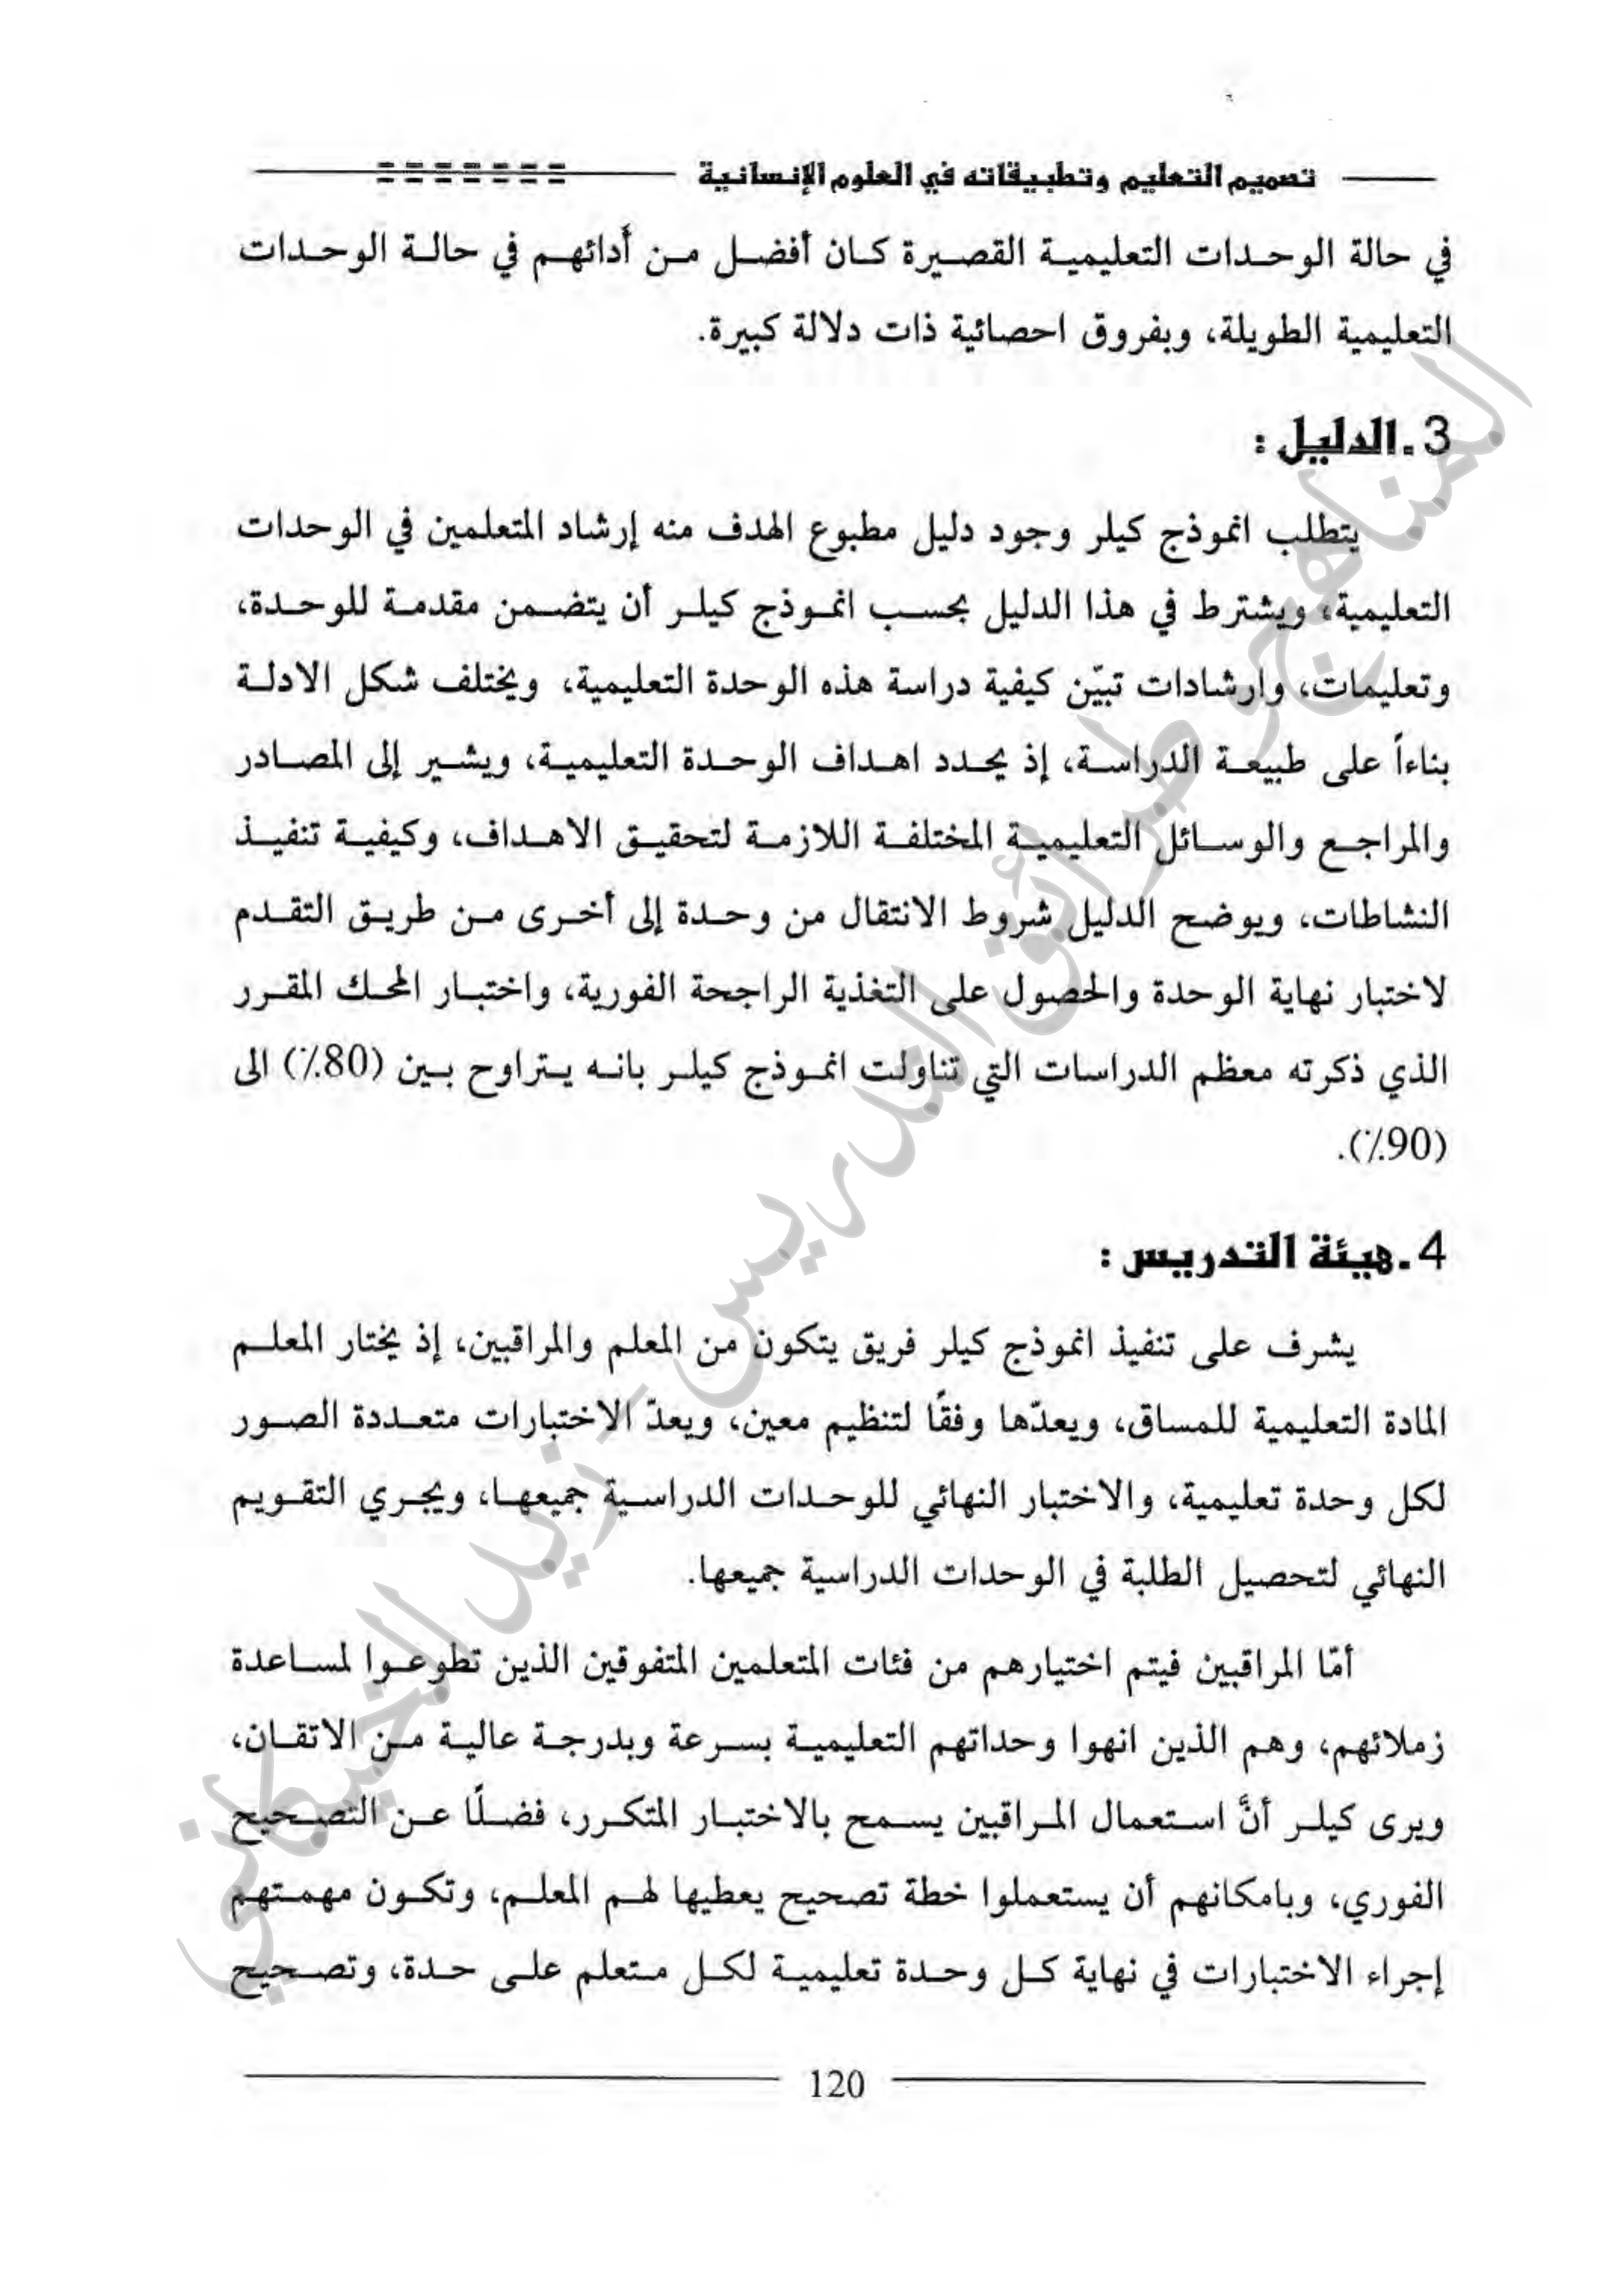 تصميم التعليم وتطبيقاته في العلوم الإنسانية
في حالة الوحدات التعليمية القصيرة كان أفضل من أدائهم في حالة الوحدات
التعليمية الطويلة، وبفروق احصائية ذات دلالة كبيرة.
3.الدليل :
يتطلب انموذج كيلر وجود دليل مطبوع الهدف منه إرشاد المتعلمين في الوحدات
التعليمية، ويشترط في هذا الدليل بحسب انموذج كيلر أن يتضمن مقدمة للوحدة،
وتعليمات، وارشادات تبيّن كيفية دراسة هذه الوحدة التعليمية، ويختلف شكل الادلة
بناءاً على طبيعة الدراسة، إذ يحدد اهداف الوحدة التعليمية، ويشير إلى المصادر
والمراجع والوسائل التعليمية المختلفة اللازمة لتحقيق الاهداف، وكيفية تنفيذ
النشاطات، ويوضح الدليل شروط الانتقال من وحدة إلى أخرى من طريق التقدم
لاختبار نهاية الوحدة والحصول على التغذية الراجحة الفورية، واختبار المحك المقرر
الذي ذكرته معظم الدراسات التي تناولت انموذج كيلر بانه يتراوح بين (80٪) الى
(90٪).
4.هيئة التدريس :
يشرف على تنفيذ انموذج كيلر فريق يتكون من المعلم والمراقبين، إذ يختار المعلم
المادة التعليمية للمساق، ويعدّها وفقًا لتنظيم معين، ويعدّ الاختبارات متعددة الصور
لكل وحدة تعليمية، والاختبار النهائي للوحدات الدراسية جميعها، ويجري التقويم
النهائي لتحصيل الطلبة في الوحدات الدراسية جميعها.
أمّا المراقبين فيتم اختيارهم من فئات المتعلمين المتفوقين الذين تطوعوا لمساعدة
زملائهم، وهم الذين انهوا وحداتهم التعليمية بسرعة وبدرجة عالية من الاتقان،
ويرى كيلر أنَّ استعمال المراقبين يسمح بالاختبار المتكرر، فضلًا عن التصحيح
الفوري، وبامكانهم أن يستعملوا خطة تصحيح يعطيها لهم المعلم، وتكون مهمتهم
إجراء الاختبارات في نهاية كل وحدة تعليمية لكل متعلم على حدة، وتصحيح
120
المناهج وطرائق التدريس - زيد الخيكاني